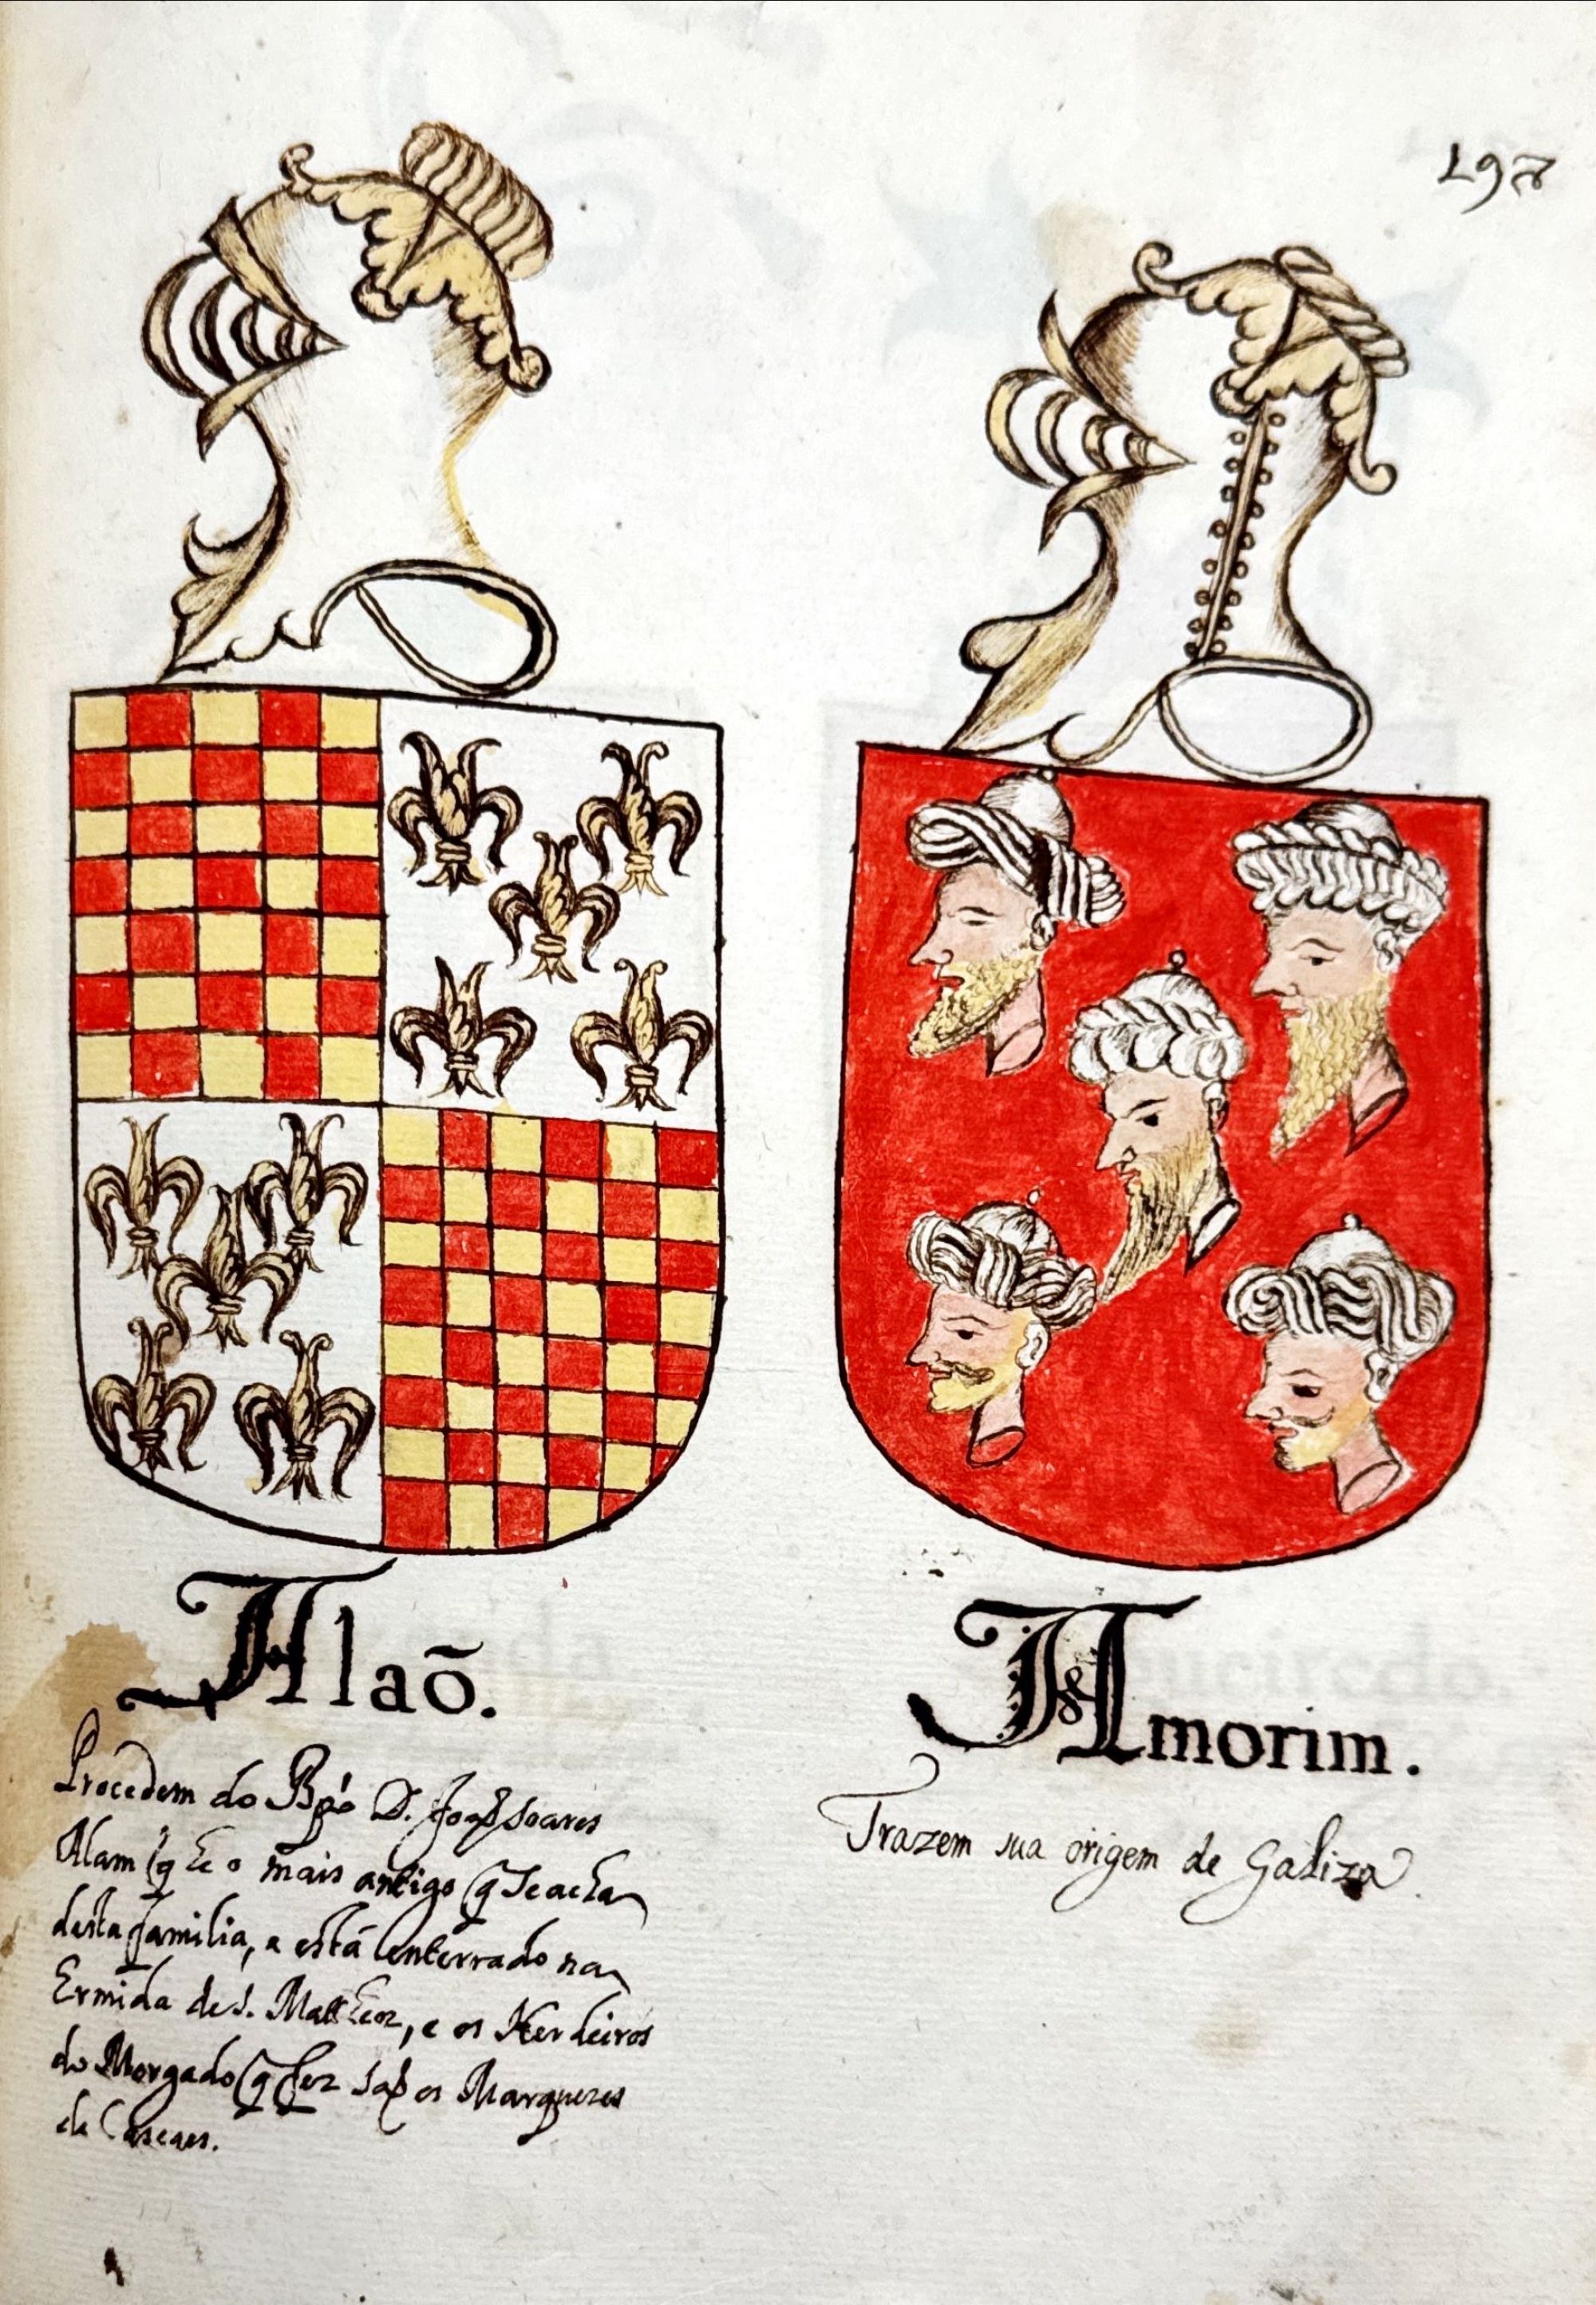 197
Alaõ.
Procedem do Bpo D. Joaõ Soares
Alam q he o mais antigo q se acha
desta familia, e está enterrado na
Ermida de S. Matheos, e os Herdeiros
do Morgado q fez saõ os Marquezes
de Cascaes.
Amorim.
Trazem sua origem de Galiza